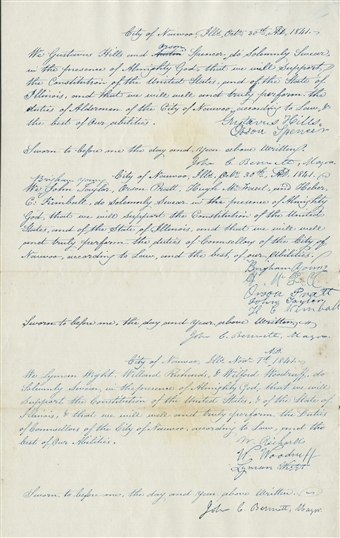 City of Nauvoo, Ills. Octr. 30th. AD. 1841.
We Gustavus Hills and Orson Spencer, do Solemnly Swear,
in the presence of Almighty God, that we will Support
the Constitution of the United States, and of the State of
Illinois, and that we will well and truly perform the
duties of Aldermen of the City of Nauvoo, according to Law, &
the best of our abilities.
Gustavus Hills
Orson Spencer
Sworn to before me the day and year above written,
John C. Bennett, Mayor.
Brigham Young City of Nauvoo, Ills. Octr. 30th. 1841.
We, John Taylor, Orson Pratt, Hugh and Heber
C. Kimball, do Solemnly Swear in the presence of Almighty
God, that we will support the Constitution of the United
States, and of the State of Illinois, and that we will well
and truly perform the duties of Counsellors of the City of
Nauvoo, according to Law, and the best of our abilities.
Brigham Young
Orson Pratt
John Taylor
H C Kimball
Sworn to before me, the day and year, above written,
John C. Bennett, Mayor.
AD.
City of Nauvoo, Ills. Novr. 1st. 1841.
We Lyman Wight, Willard Richards, & Wilford Woodruff, do
Solemnly Swear, in the presence of Almighty God, that we will
Support the Constitution of the United States, & of the State of
Illinois, & that we will well and truly perform the Duties
of Counsellors of the City of Nauvoo, according to Law, and the
best of Our Abilities.
W. Richards
W. Woodruff
Lyman Wight
Sworn to before me, the day and year, above written.
John C. Bennett, Mayor